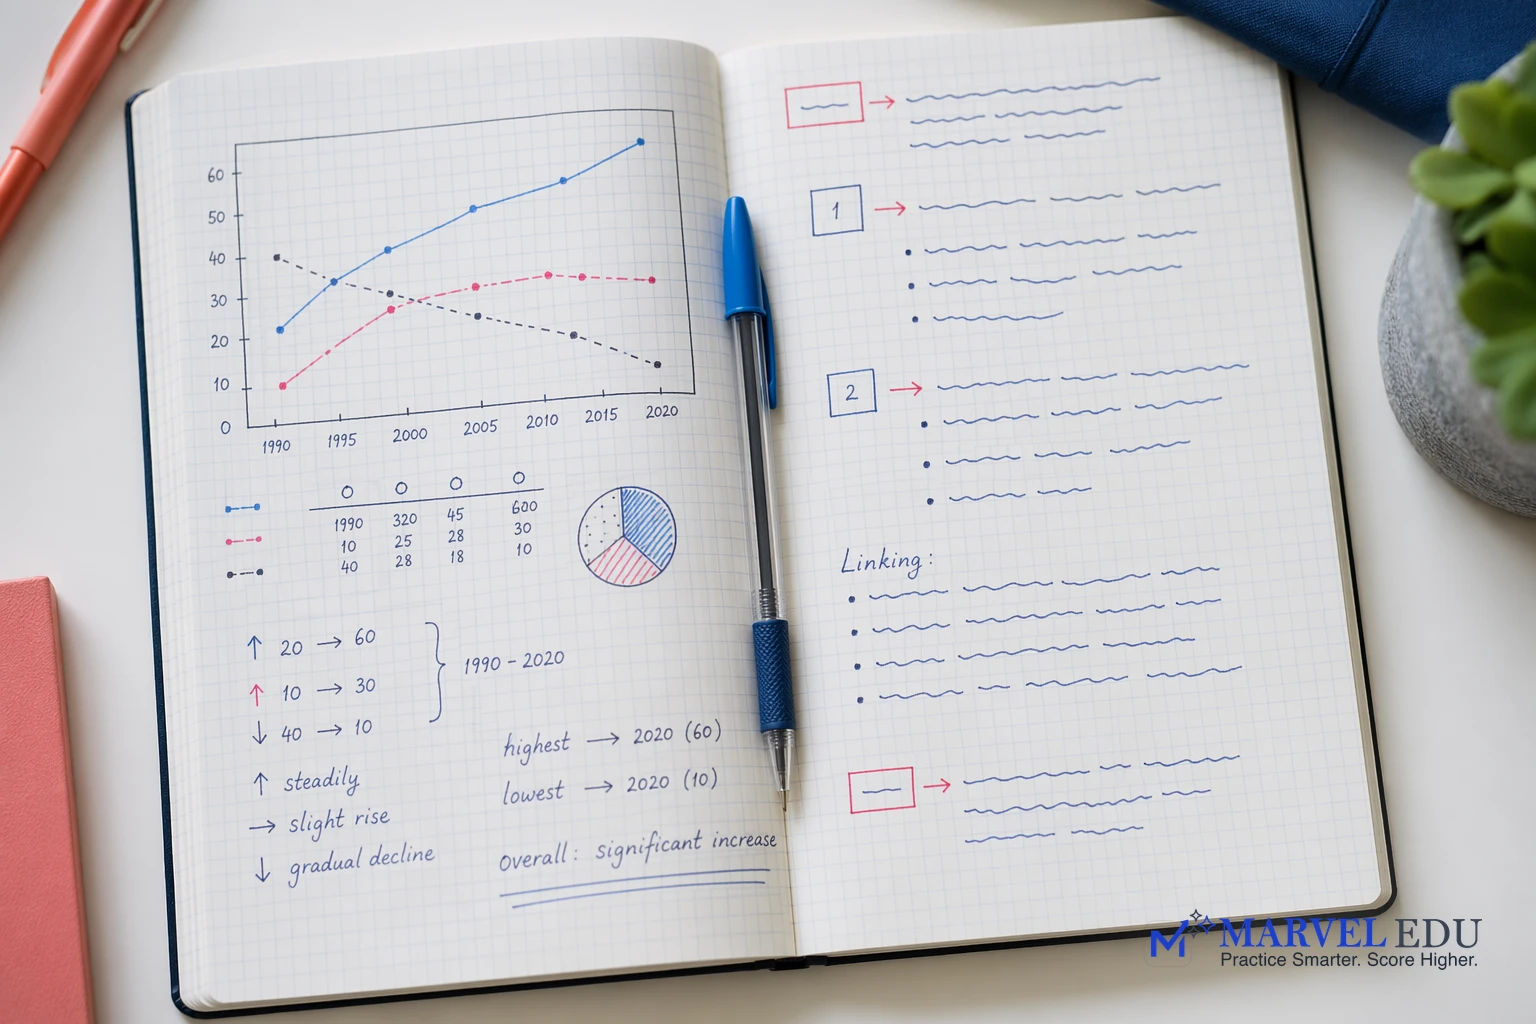 60
50
40
30
20
10
0
1990 1995 2000 2005 2010 2015 2020
1990 320 45 600
10 25 28 30
40 28 18 10
↑ 20 → 60
↑ 10 → 30
↓ 40 → 10
1990 - 2020
↑ steadily
→ slight rise
↓ gradual decline
highest → 2020 (60)
lowest → 2020 (10)
Overall: significant increase
1
2
Linking:
MARVEL EDU
Practice Smarter. Score Higher.